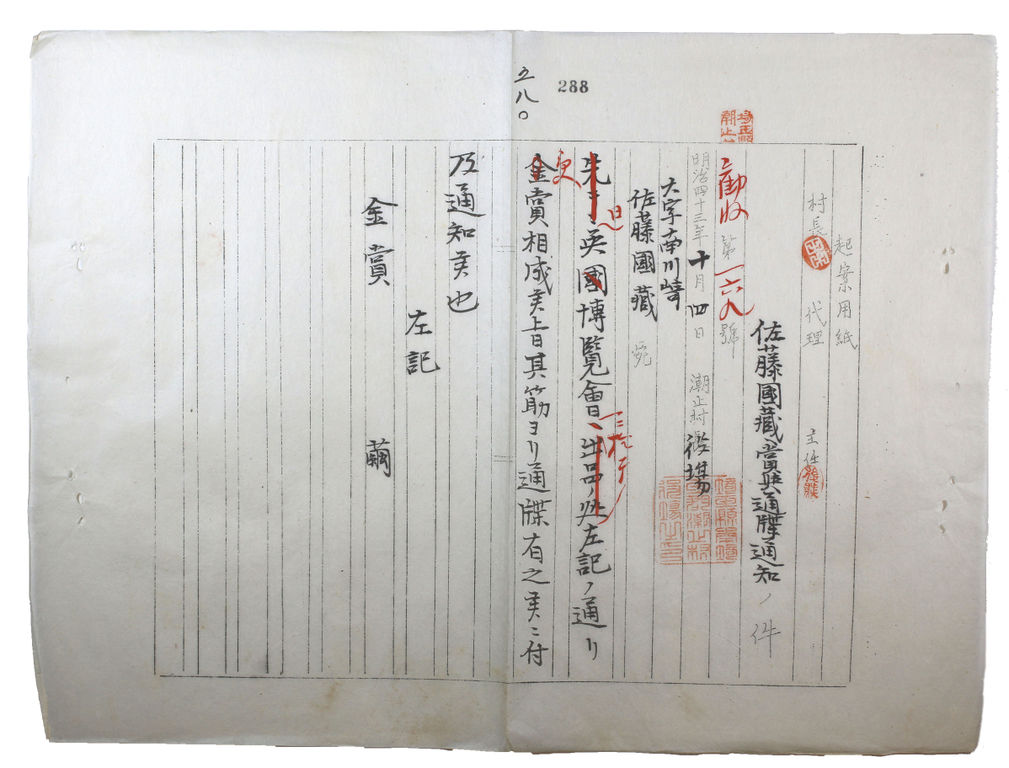 288
五八〇
起案用紙
村長 代理 主任
佐藤國藏賞與通牒通知ノ件
勸收第一六九號
明治四十三年十月四日 潮止村役場
大字南川崎
佐藤國藏 宛
先ニ英國博覽會ヘ出品ノ処左記ノ通リ
日
金賞相成候上旨其筋ヨリ通牒有之候ニ付
及通知候也
左記
金賞 繭